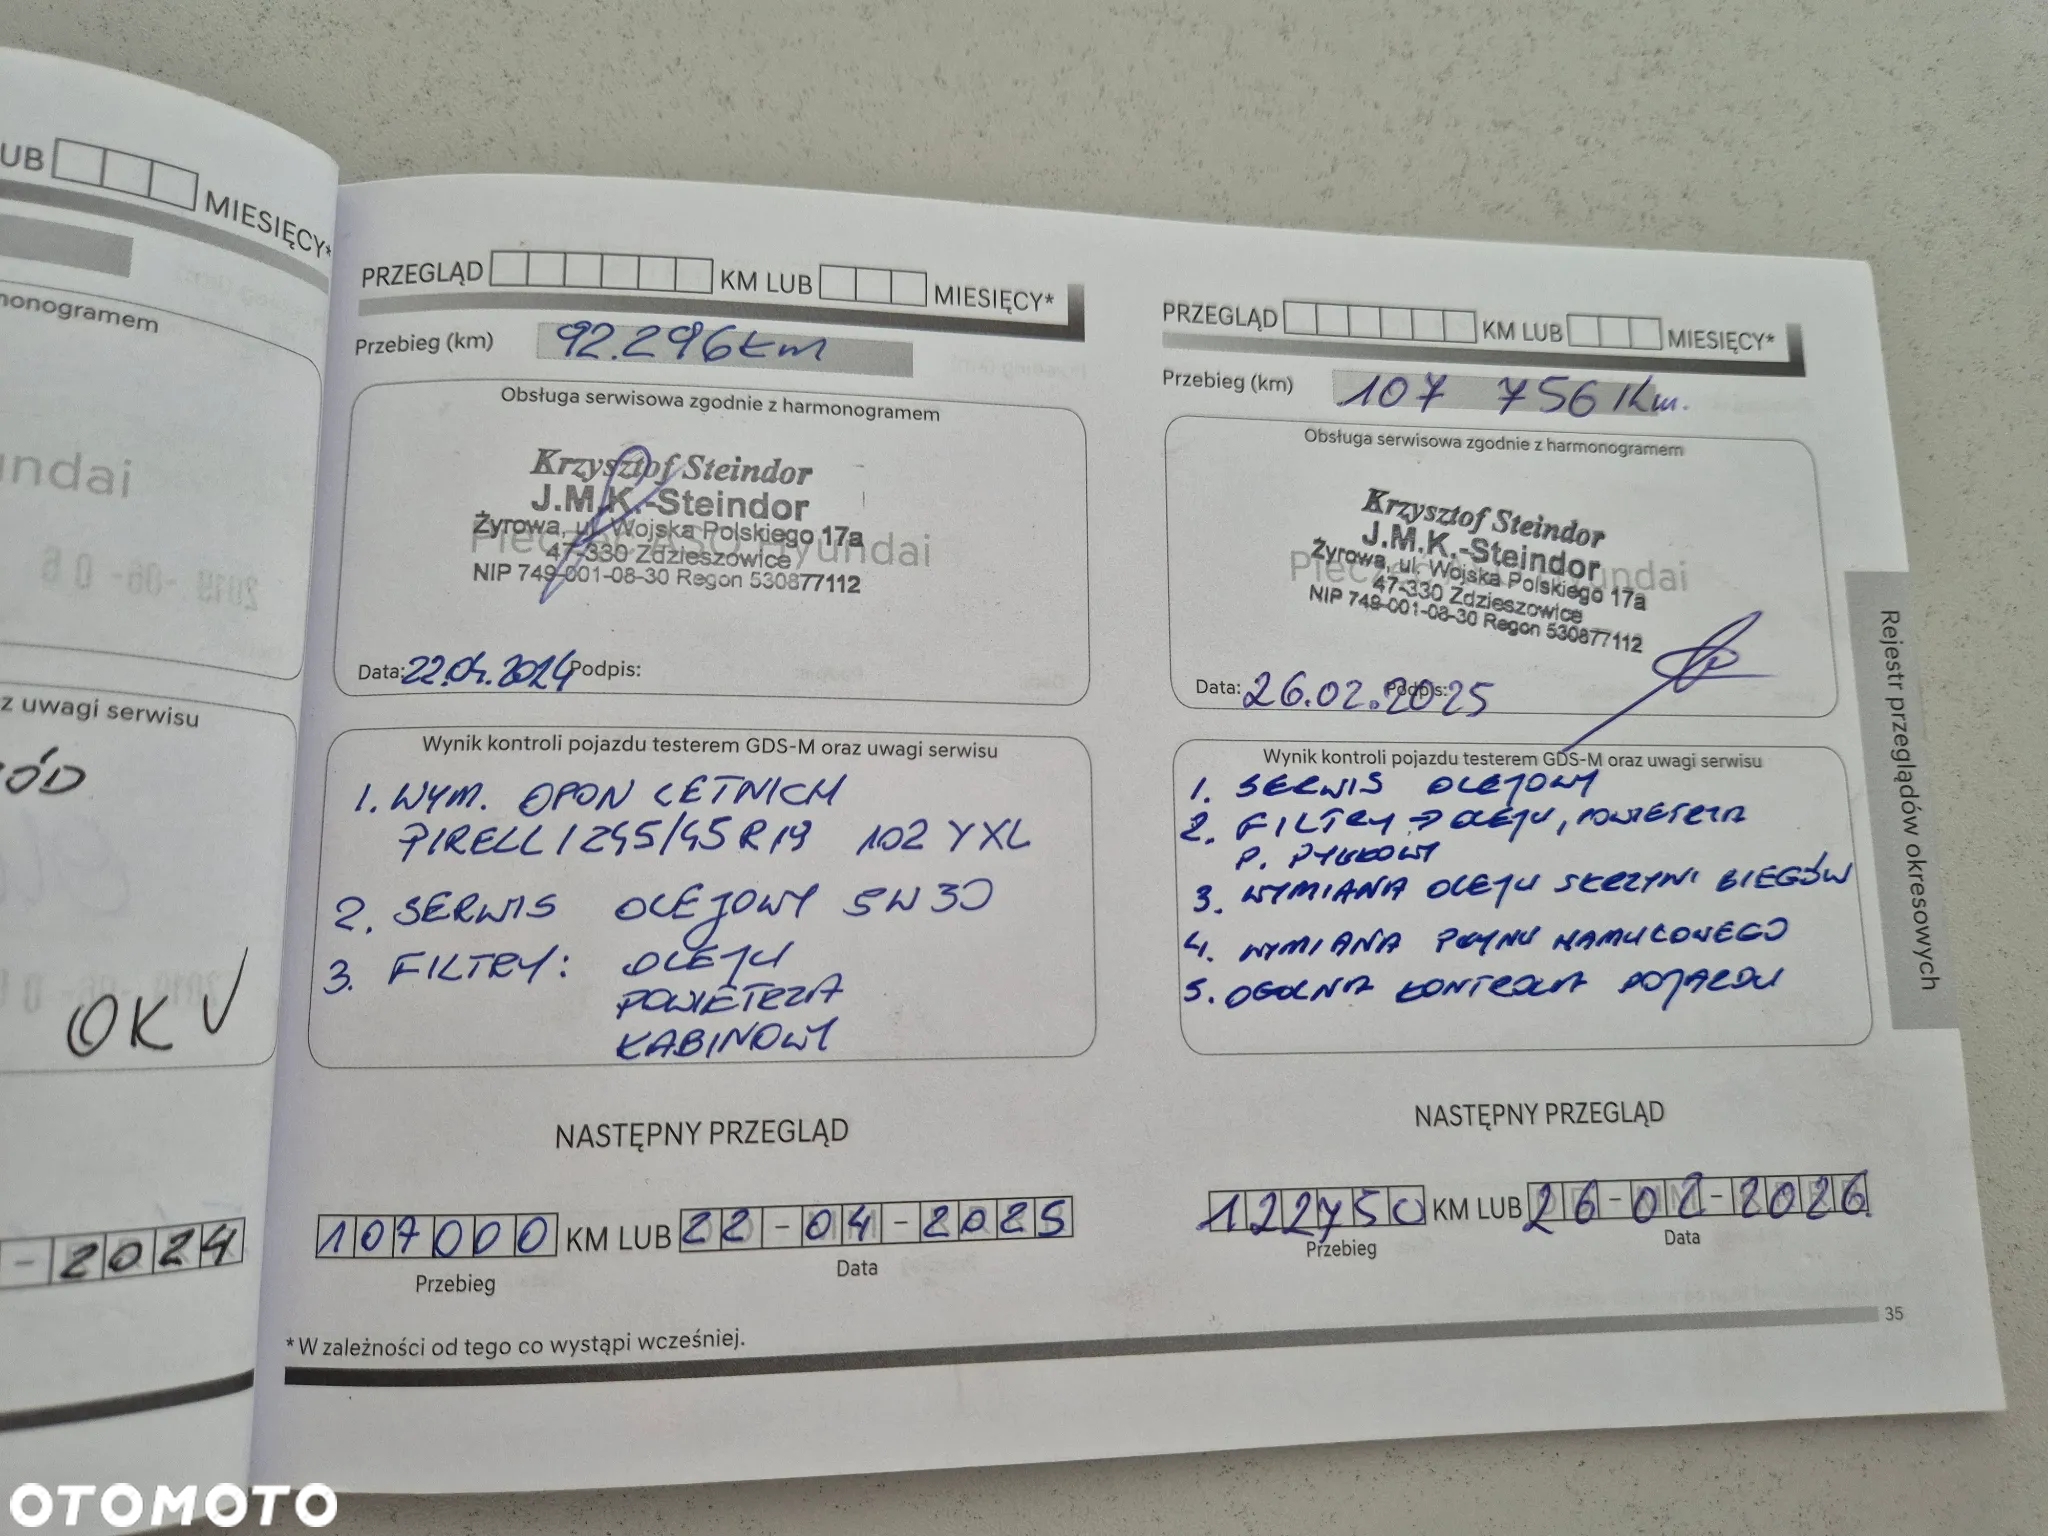 UB MIESIĘCY*
monogramem
undai
z uwagi serwisu
ÓD
OK V
- 2024
PRZEGLĄD KM LUB MIESIĘCY*
Przebieg (km) 92.296km
Obsługa serwisowa zgodnie z harmonogramem
Krzysztof Steindor
J.M.K.-Steindor
Żyrowa, ul. Wojska Polskiego 17a
47-330 Zdzieszowice
NIP 749-001-08-30 Regon 530877112
Data: 22.04.2024 Podpis:
Wynik kontroli pojazdu testerem GDS-M oraz uwagi serwisu
1. WYM. OPON LETNICH
PIRELLI 245/45 R19 102 Y XL
2. SERWIS OLEJOWY 5W30
3. FILTRY: OLEJU
POWIETRZA
KABINOWY
NASTĘPNY PRZEGLĄD
107000 KM LUB 22-04-2025
Przebieg Data
*W zależności od tego co wystąpi wcześniej.
PRZEGLĄD KM LUB MIESIĘCY*
Przebieg (km) 107 756 Km.
Obsługa serwisowa zgodnie z harmonogramem
Krzysztof Steindor
J.M.K.-Steindor
Żyrowa, ul. Wojska Polskiego 17a
47-330 Zdzieszowice
NIP 749-001-08-30 Regon 530877112
Data: 26.02.2025 Podpis:
Wynik kontroli pojazdu testerem GDS-M oraz uwagi serwisu
1. SERWIS OLEJOWY
2. FILTRY → OLEJU, POWIETRZA
P. PYŁKOWY
3. WYMIANA OLEJU SKRZYNI BIEGÓW
4. WYMIANA PŁYNU HAMULCOWEGO
5. OGÓLNA KONTROLA POJAZDU
NASTĘPNY PRZEGLĄD
122750 KM LUB 26-02-2026
Przebieg Data
35
Rejestr przeglądów okresowych
OTOMOTO